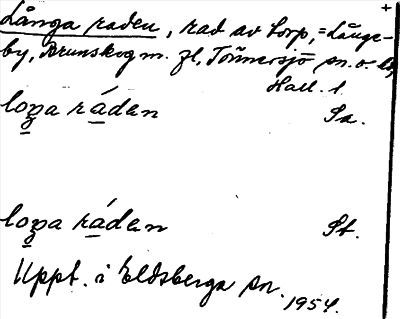 +
Långa raden, rad av torp, = Långe-
by, Brunskog m. fl, Tönnersjö sn. o. hd,
Hall. l.
loŋa ráden Sa.
loŋa ráden St.
Uppt. i Eldsberga sn. 1954.